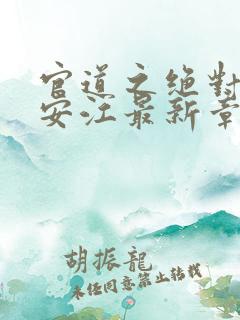 官道之绝對
安江最新章
胡振龍
未经同意禁止转载